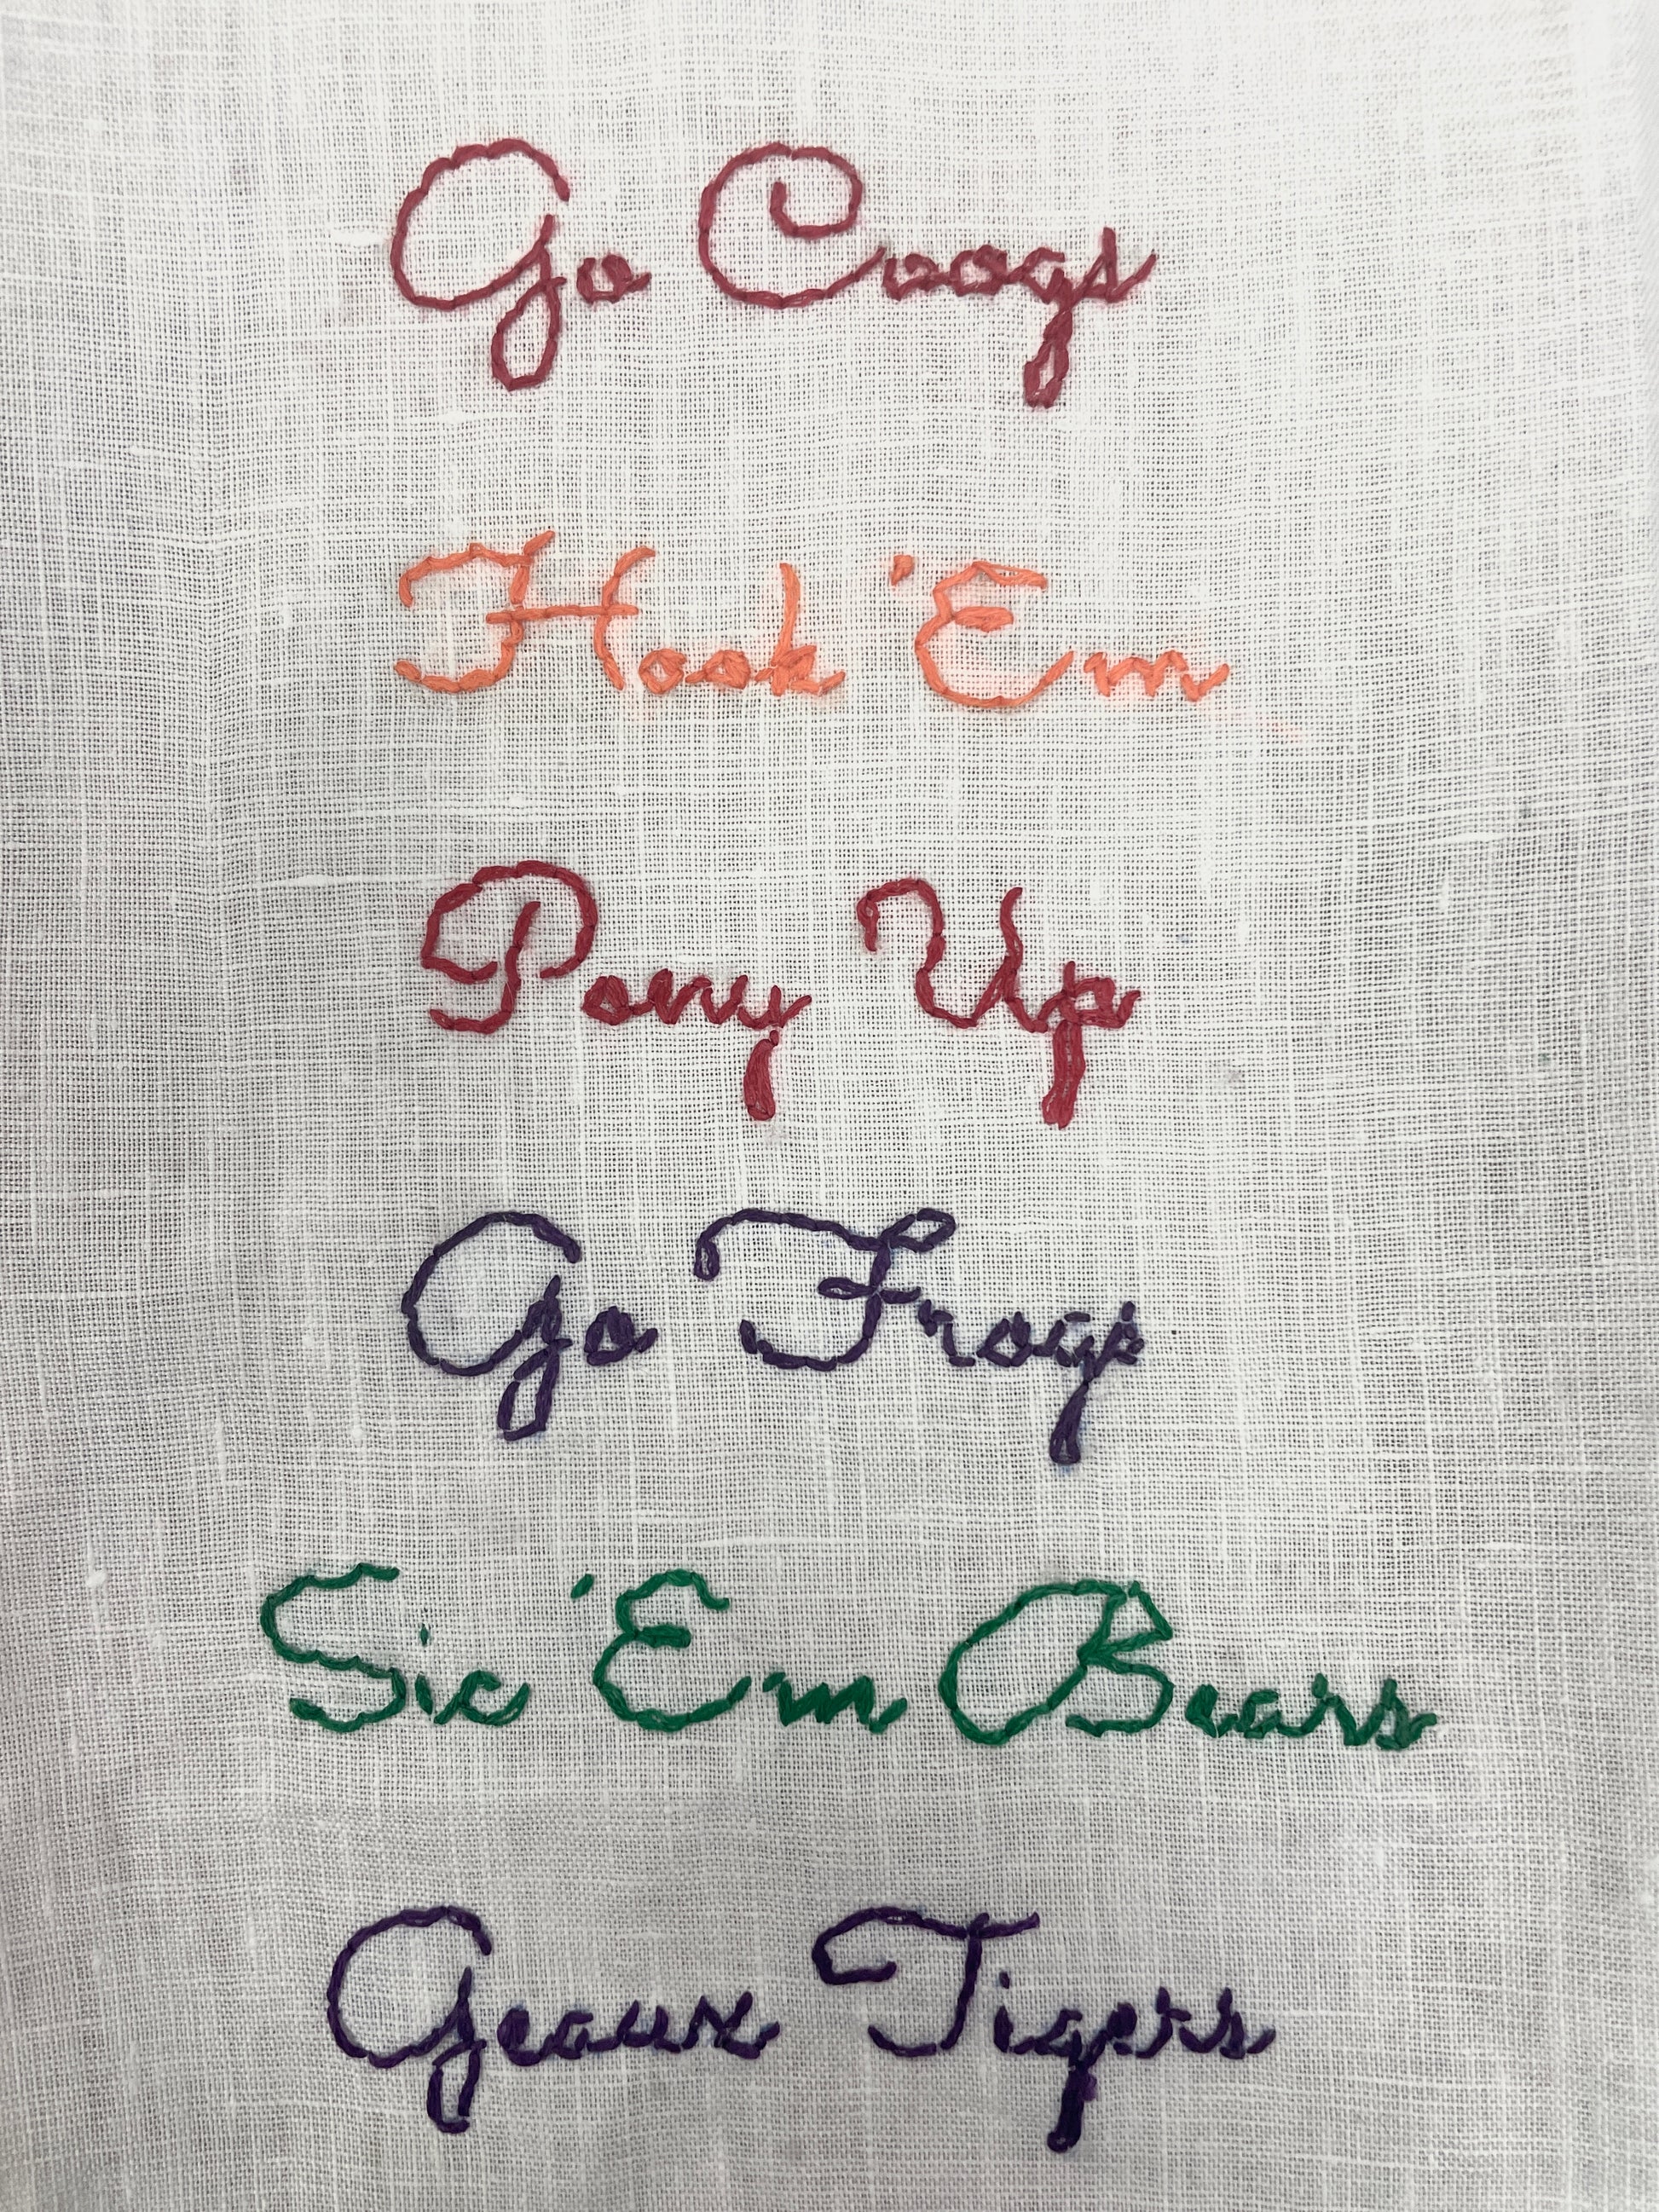 Go Coogs
Hook 'Em
Pony Up
Go Frogs
Sic 'Em Bears
Geaux Tigers